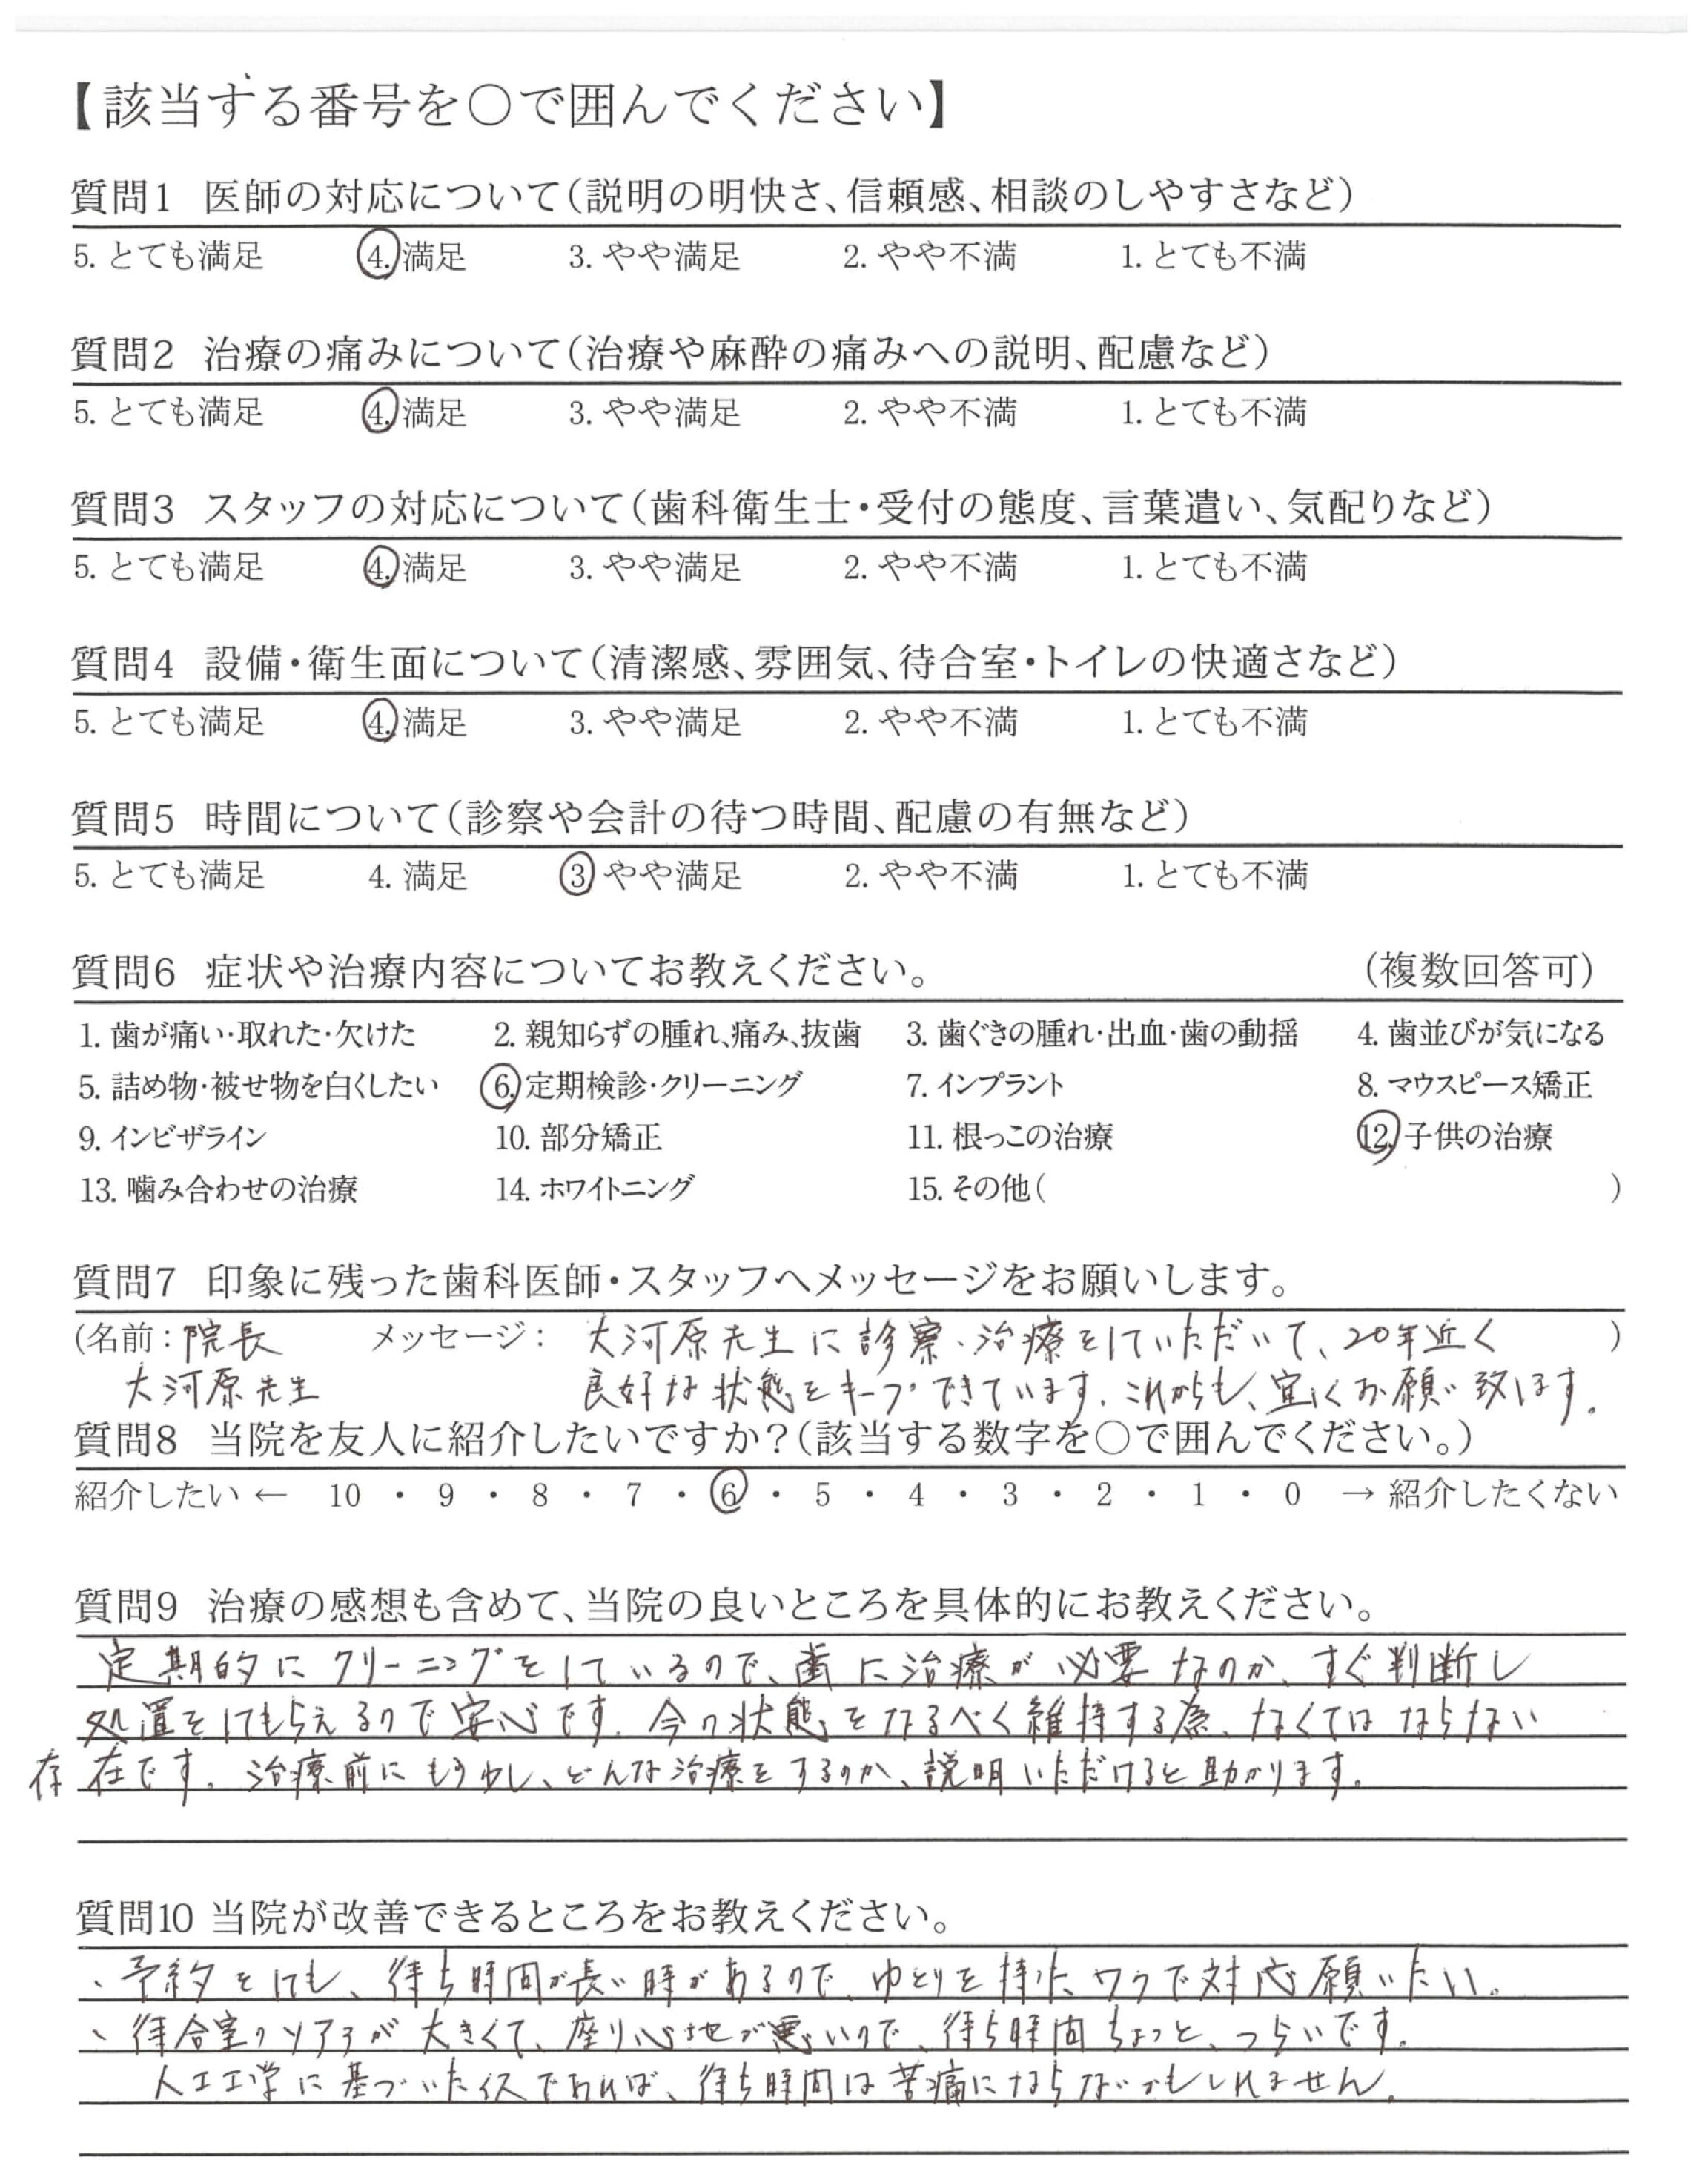 【該当する番号を○で囲んでください】
質問1 医師の対応について(説明の明快さ、信頼感、相談のしやすさなど)
5. とても満足 4. 満足 3. やや満足 2. やや不満 1. とても不満
質問2 治療の痛みについて(治療や麻酔の痛みへの説明、配慮など)
5. とても満足 4. 満足 3. やや満足 2. やや不満 1. とても不満
質問3 スタッフの対応について(歯科衛生士・受付の態度、言葉遣い、気配りなど)
5. とても満足 4. 満足 3. やや満足 2. やや不満 1. とても不満
質問4 設備・衛生面について(清潔感、雰囲気、待合室・トイレの快適さなど)
5. とても満足 4. 満足 3. やや満足 2. やや不満 1. とても不満
質問5 時間について(診察や会計の待つ時間、配慮の有無など)
5. とても満足 4. 満足 3 やや満足 2. やや不満 1. とても不満
質問6 症状や治療内容についてお教えください。 (複数回答可)
1. 歯が痛い・取れた・欠けた 2. 親知らずの腫れ、痛み、抜歯 3. 歯ぐきの腫れ・出血・歯の動揺 4. 歯並びが気になる
5. 詰め物・被せ物を白くしたい 6. 定期検診・クリーニング 7. インプラント 8. マウスピース矯正
9. インビザライン 10. 部分矯正 11. 根っこの治療 12. 子供の治療
13. 噛み合わせの治療 14. ホワイトニング 15. その他( )
質問7 印象に残った歯科医師・スタッフへメッセージをお願いします。
(名前 : 院長 メッセージ : 大河原先生に診察、治療をしていただいて、20年近く )
大河原先生 良好な状態をキープできています。これからも、宜しくお願い致します。
質問8 当院を友人に紹介したいですか?(該当する数字を○で囲んでください。)
紹介したい ← 10 ・ 9 ・ 8 ・ 7 ・ 6 ・ 5 ・ 4 ・ 3 ・ 2 ・ 1 ・ 0 → 紹介したくない
質問9 治療の感想も含めて、当院の良いところを具体的にお教えください。
定期的にクリーニングをしているので、歯に治療が必要なのか、すぐ判断し
処置をしてもらえるので安心です。今の状態をなるべく維持する為、なくてはならない
存在です。治療前にもう少し、どんな治療をするのか、説明いただけると助かります。
質問10 当院が改善できるところをお教えください。
、予約をしても、待ち時間が長い時があるので、ゆとりを持ったワクで対応願いたい。
、待合室のソファが大きくて、座り心地が悪いので、待ち時間ちょっと、つらいです。
人工工学に基づいたイスであれば、待ち時間は苦痛にならないかもしれません。